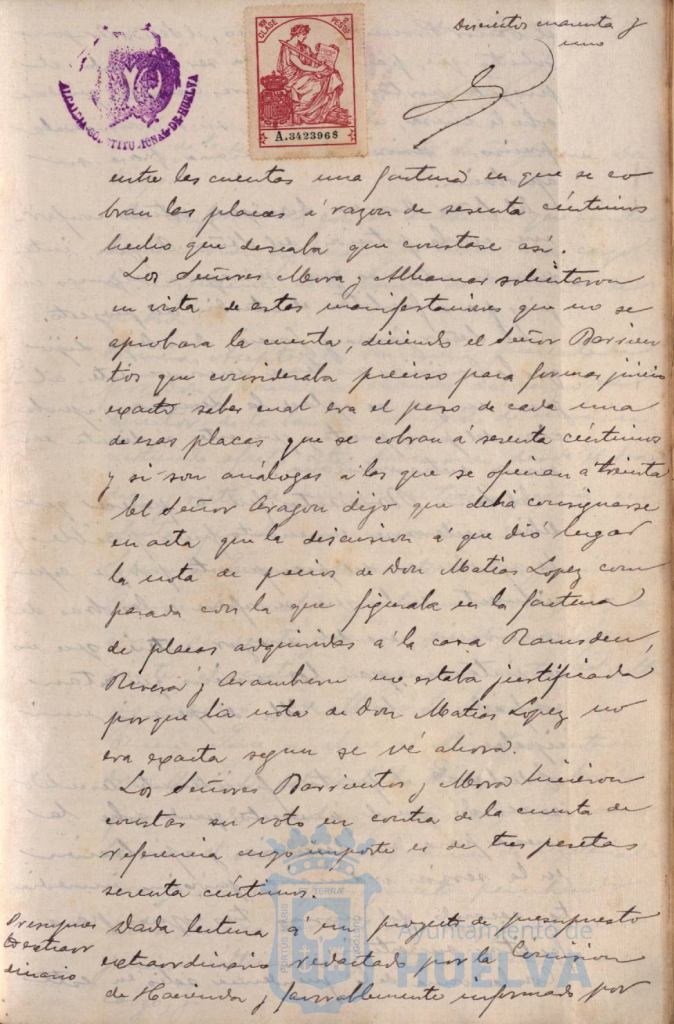 Doscientos cuarenta y
uno
ALCALDIA CONSTITUCIONAL DE HUELVA
CLASE
PESETAS
A.3423968
entre las cuentas una factura en que se co
bran las placas á razon de sesenta céntimos
hecho que deseaba que constase así.
Los Señores Mora y Alhamar solicitaron
en vista de estas manifestaciones que no se
aprobara la cuenta, diciendo el Señor Barrien
tos que consideraba preciso para formar juicio
exacto saber cual era el peso de cada una
de esas placas que se cobran á sesenta céntimos
y si son análogas a las que se ofrecian a treinta
El Señor Aragon dijo que debia consignarse
en acta que la discusion á que dió lugar
la nota de precios de Don Matias Lopez com
parada con la que figuraba en la factura
de placas adquiridas á la casa Ramsden,
Rivera y Aramburu no estaba justificada
porque la nota de Don Matias Lopez no
era exacta segun se vé ahora.
Los Señores Barrientos y Mora hicieron
constar su voto en contra de la cuenta de
referencia cuyo importe es de tres pesetas
sesenta céntimos.
Presupues
to extraor
dinario
Dada lectura á un proyecto de presupuesto
extraordinario redactado por la Comision
de Hacienda y favorablemente informado por
PORTUS MARIS
TERRAE
CUSTODIA
Ayuntamiento de
HUELVA